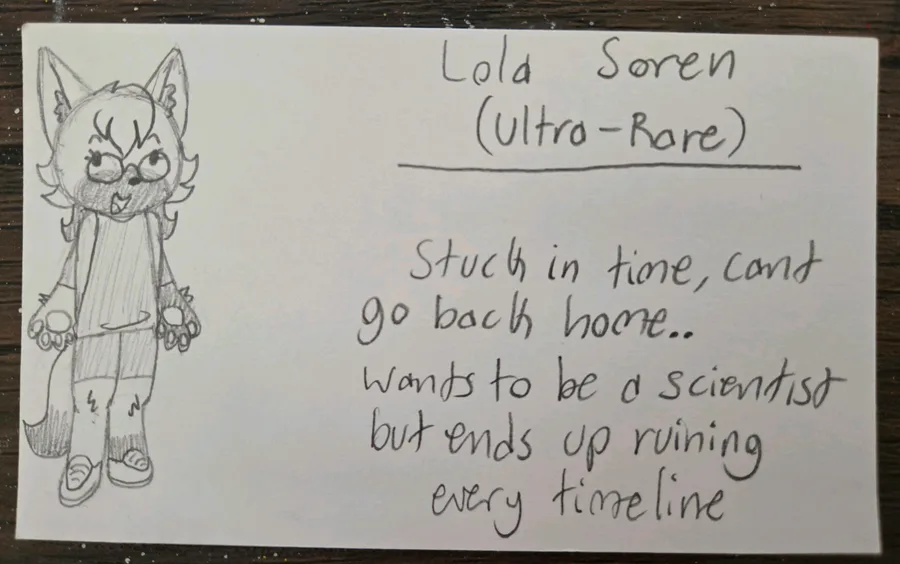 Lola Soren
(Ultra-Rare)
Stuck in time, cant
go back home..
wants to be a scientist
but ends up ruining
every timeline